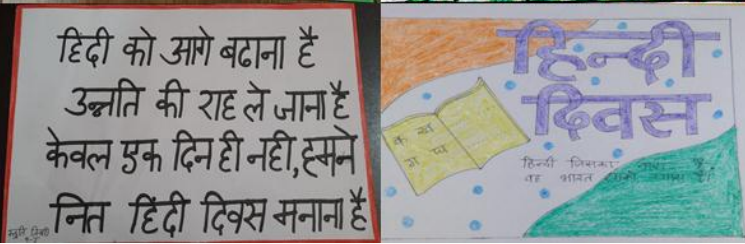 हिंदी को आगे बढाना है
उन्नति की राह ले जाना है
केवल एक दिन ही नही, हमने
नित हिंदी दिवस मनाना है
हिन्दी
दिवस
क ख
ग घ
हिन्दी जिसका
वह भारत